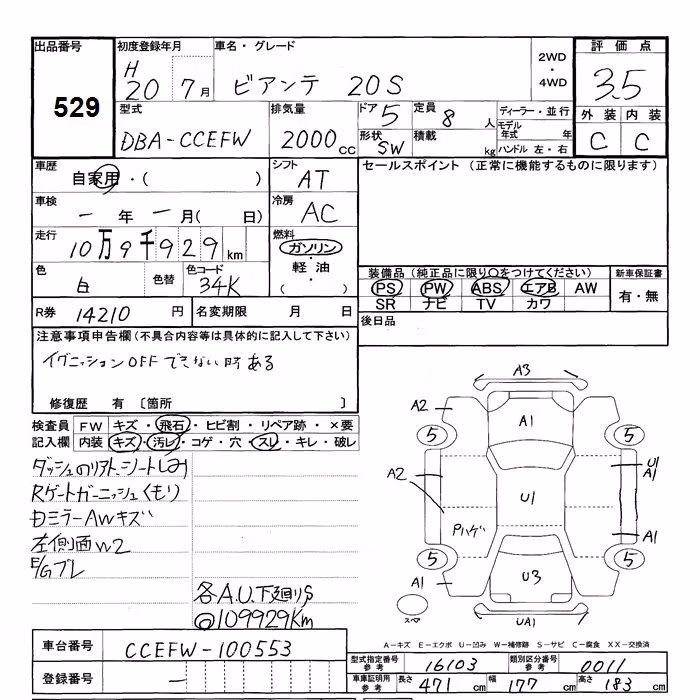 出品番号
529
初度登録年月
H
20 7月
車名・グレード
ビアンテ 20S
2WD
・
4WD
評価点
3.5
型式
DBA-CCEFW
排気量
2000cc
ドア 5
形状 SW
定員 8人
積載 kg
ディーラー・並行
モデル年式 年
ハンドル 左・右
外装 内装
C C
車歴
自家用・( )
シフト
AT
セールスポイント (正常に機能するものに限ります)
車検
一年一月( 日)
冷房
AC
走行
10万9千929km
燃料
ガソリン
・
軽油
・
( )
色
白
色替
色コード
34K
装備品(純正品に限り○をつけてください)
PS PW ABS エアB AW
SR ナビ TV カワ
新車保証書
有・無
R券 14210円
名変期限 月 日
後日品
注意事項申告欄(不具合内容等は具体的に記入して下さい)
イグニッションOFFできない時ある
修復歴 有 〔箇所 〕
検査員
記入欄
FW キズ・飛石・ヒビ割・リペア跡・×要
内装 キズ・汚レ・コゲ・穴・スレ・キレ・破レ
Rゲートガーニッシュくもり
Dミラー AWキズ
左側面W2
E/Gブレ
各A.U.下廻りS
@109929Km
A3
A2
A1
5
5
A2
U1
U1
A1
Pハゲ
A1
5
5
A1
U3
UA1
スペア
A-キズ E-エクボ U-凹み W-補修跡 S-サビ C-腐食 XX-交換済
車台番号 CCEFW-100553
登録番号 —
型式指定番号
参考
16103
類別区分番号
参考
0011
車庫証明用
参考
長さ 471cm
幅 177cm
高さ 183cm